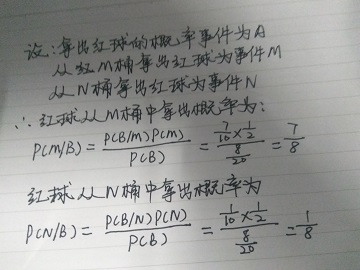 设:拿出红球的概率事件为A
从红M桶拿出红球为事件M
从N桶拿出红球为事件N
∴ 红球从M桶中拿出概率为:
P(M/B) = P(B/M)P(M) / P(B) = 7/10 × 1/2 / 8/20 = 7/8
红球从N桶中拿出概率为
P(N/B) = P(B/N)P(N) / P(B) = 1/10 × 1/2 / 8/20 = 1/8